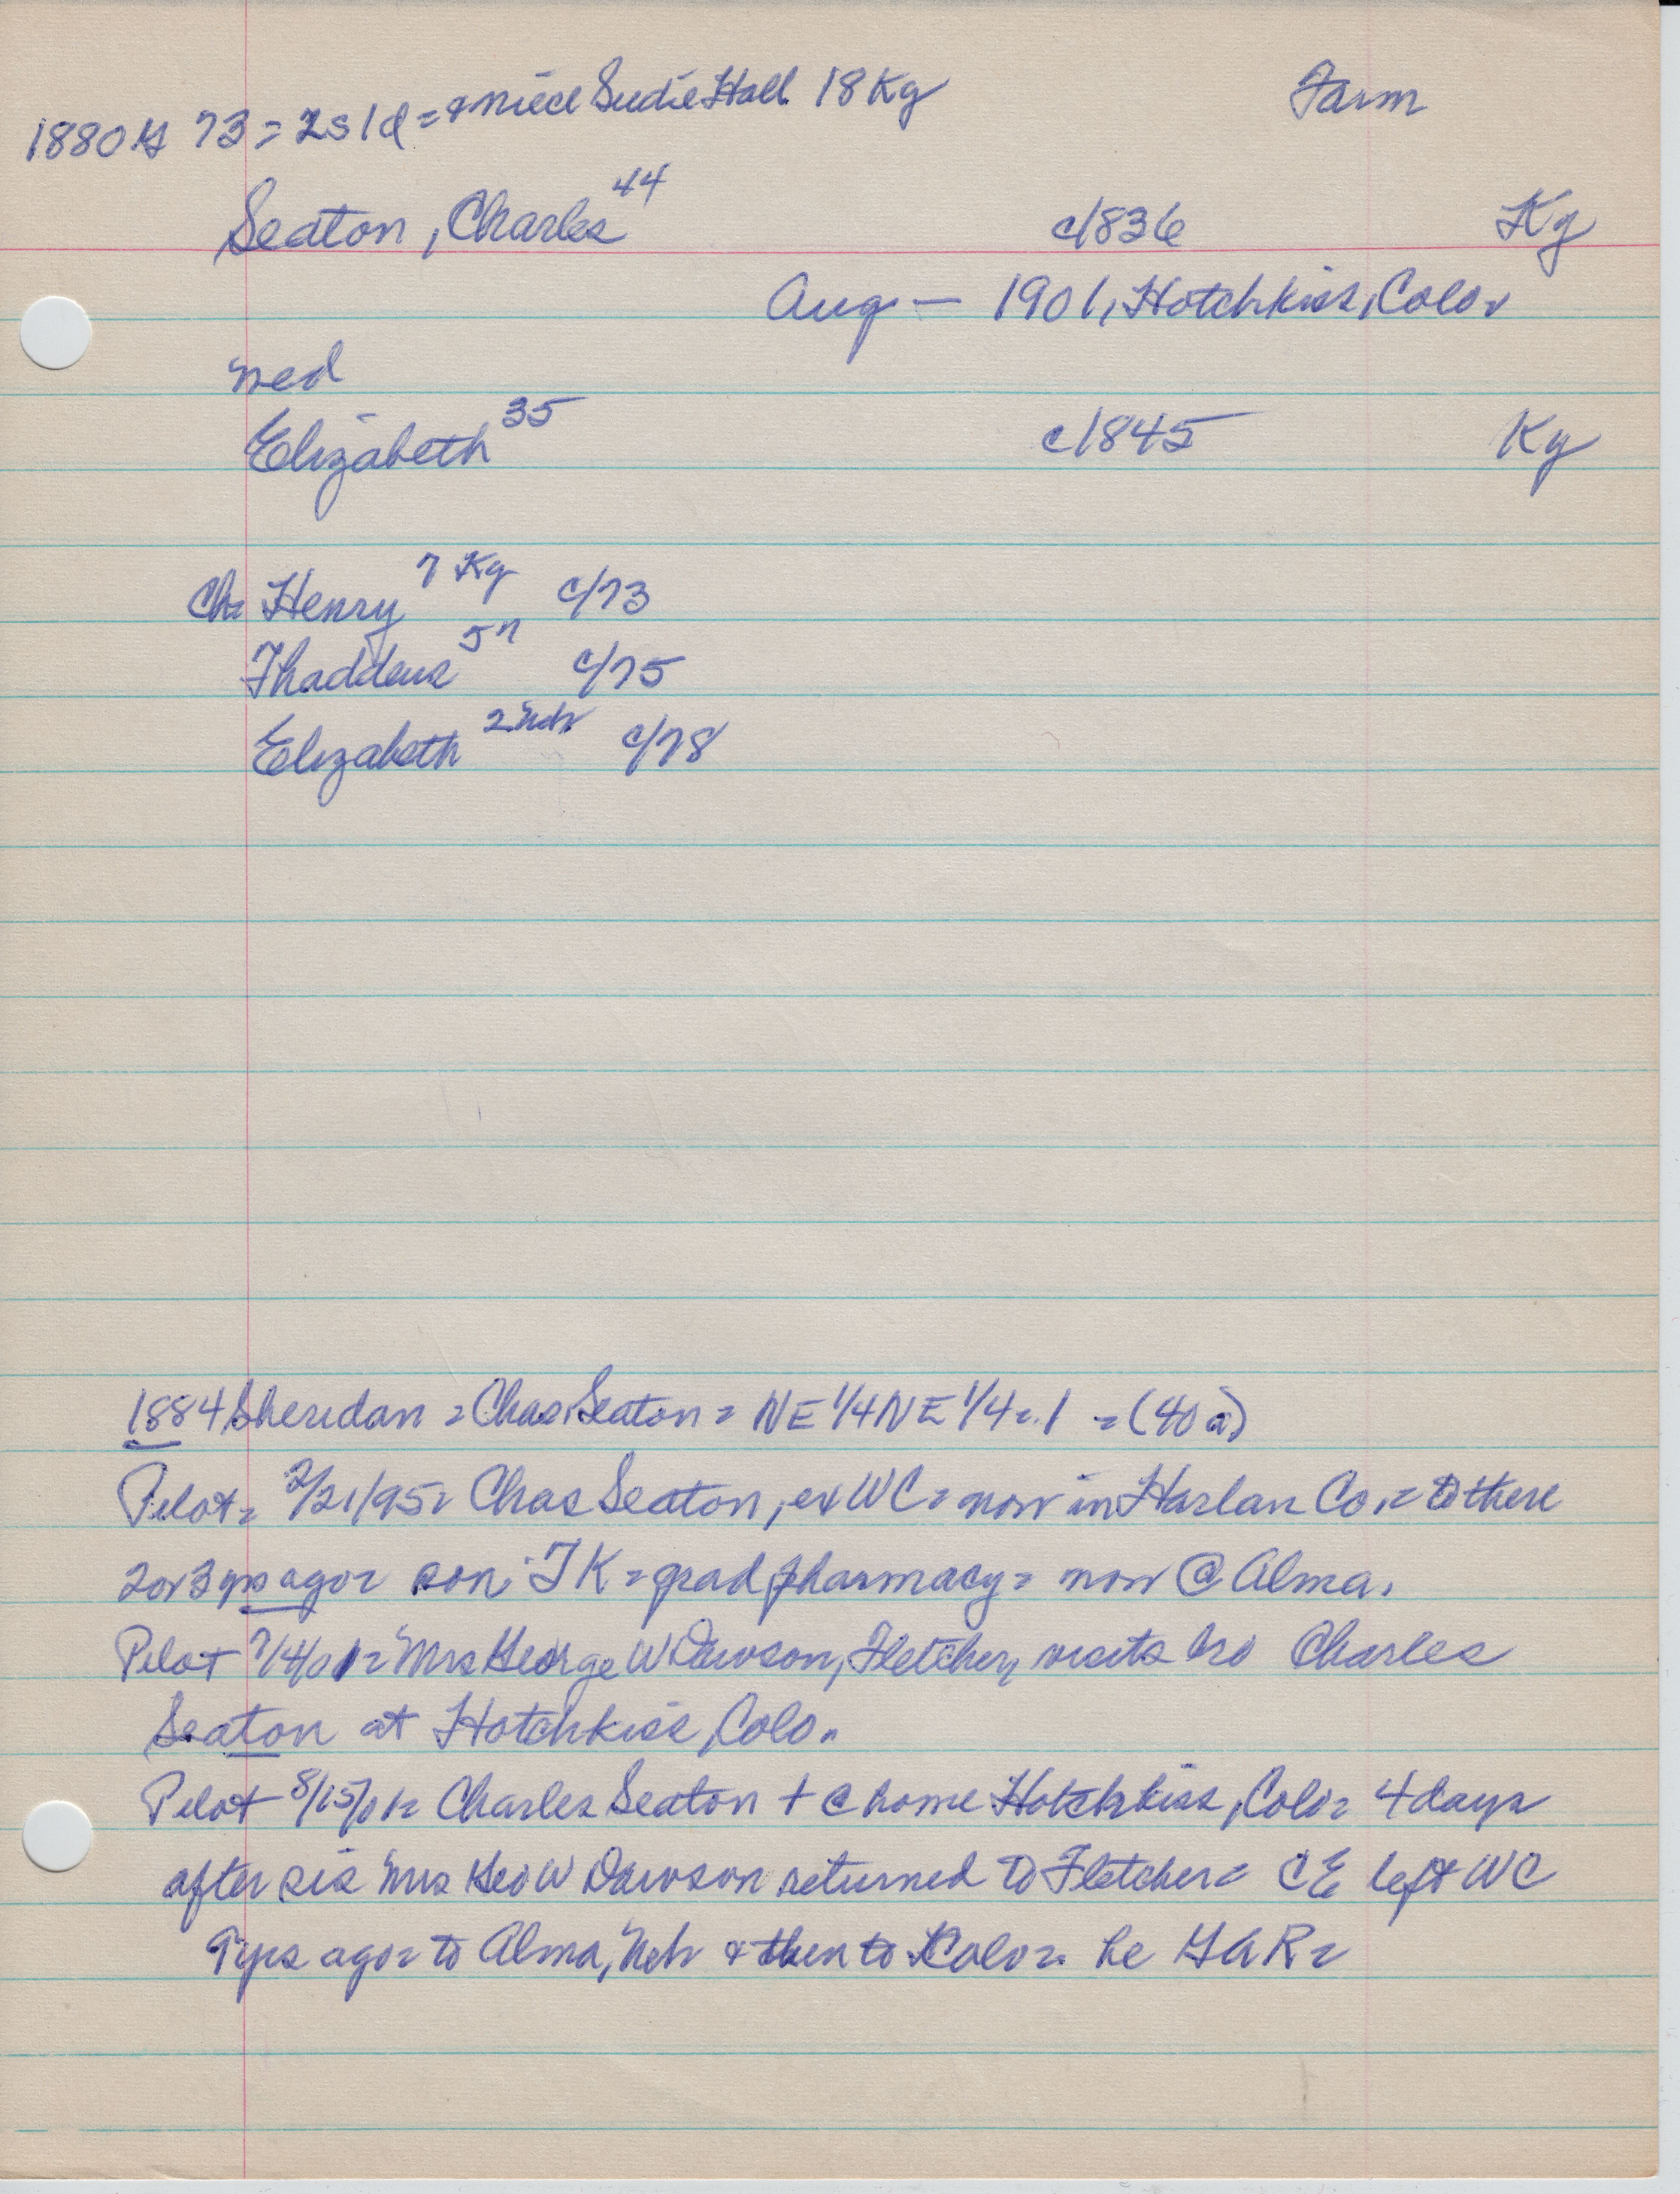 1880 # 73 = 2s 1d = & niece Sudie Hall 18 Ky Farm
Seaton, Charles 44 c1836 Ky
Aug — 1901, Hotchkiss, Colo.
med
Elizabeth 35 c1845 Ky
Ch: Henry 7 Ky c/73
Thaddeus 5 " c/75
Elizabeth 2 Neb c/78
1884 Sheridan = Chas. Seaton = NE 1/4 NE 1/4 = 1 = (40 a)
Pilot = 2/21/95 = Chas Seaton, ex WC = now in Harlan Co. = to there
2 or 3 yrs ago = son, TK = grad pharmacy = now @ Alma.
Pilot 7/4/01 = Mrs George W Dawson, Fletcher, visits bro Charles
Seaton at Hotchkiss, Colo.
Pilot 8/15/01 = Charles Seaton + @ home Hotchkiss, Colo = 4 days
after sis Mrs Geo W Dawson returned to Fletcher = CE left WC
7 yrs ago = to Alma, Neb & then to Colo = he GAR =